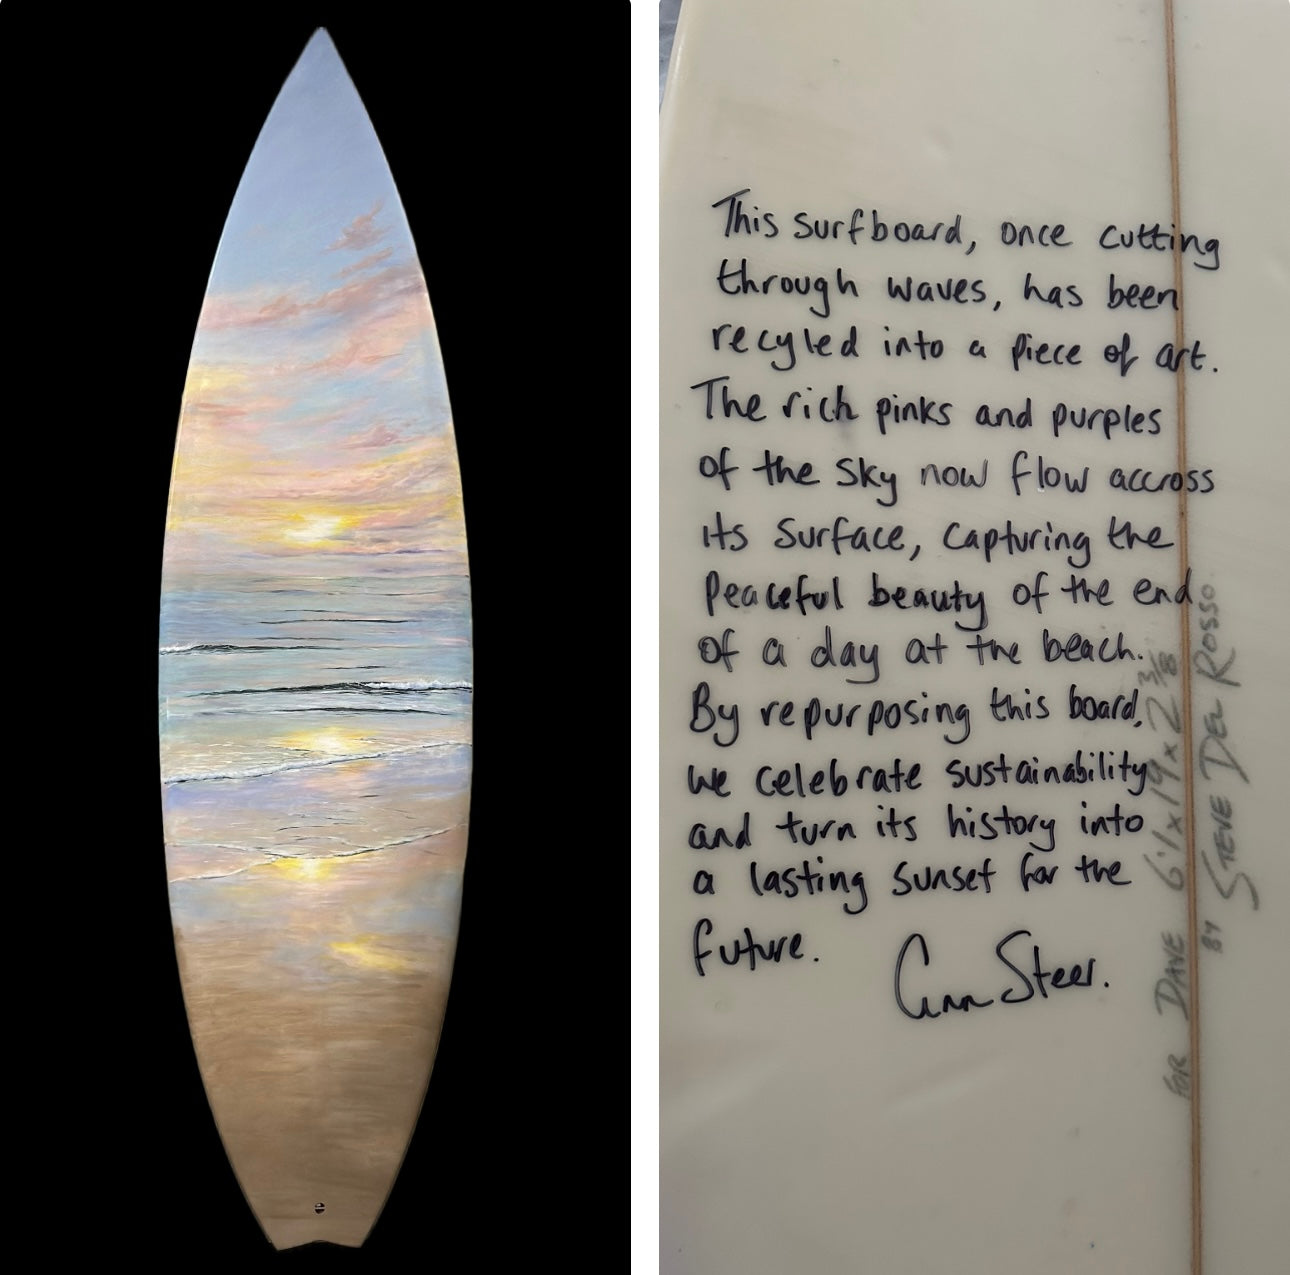 This surfboard, once cutting
through waves, has been
recyled into a piece of art.
The rich pinks and purples
of the sky now flow accross
its surface, capturing the
peaceful beauty of the end
of a day at the beach.
By repurposing this board,
we celebrate sustainability
and turn its history into
a lasting sunset for the
future.
Ann Steer.
FOR DAVE 6'1 x 19 x 2 3/8
BY STEVE DEL ROSSO.